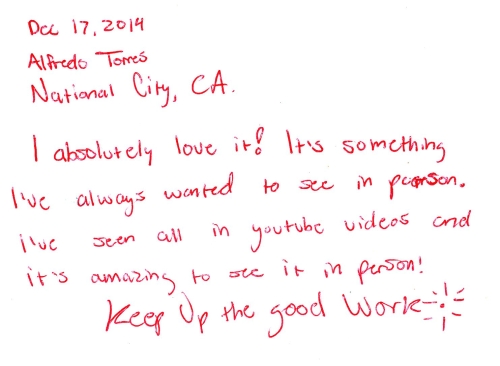 Dec 17, 2014
Alfredo Torres
National City, CA.
I absolutely love it! It's something
I've always wanted to see in person.
i've seen all in youtube videos and
it's amazing to see it in person!
Keep Up the good Work